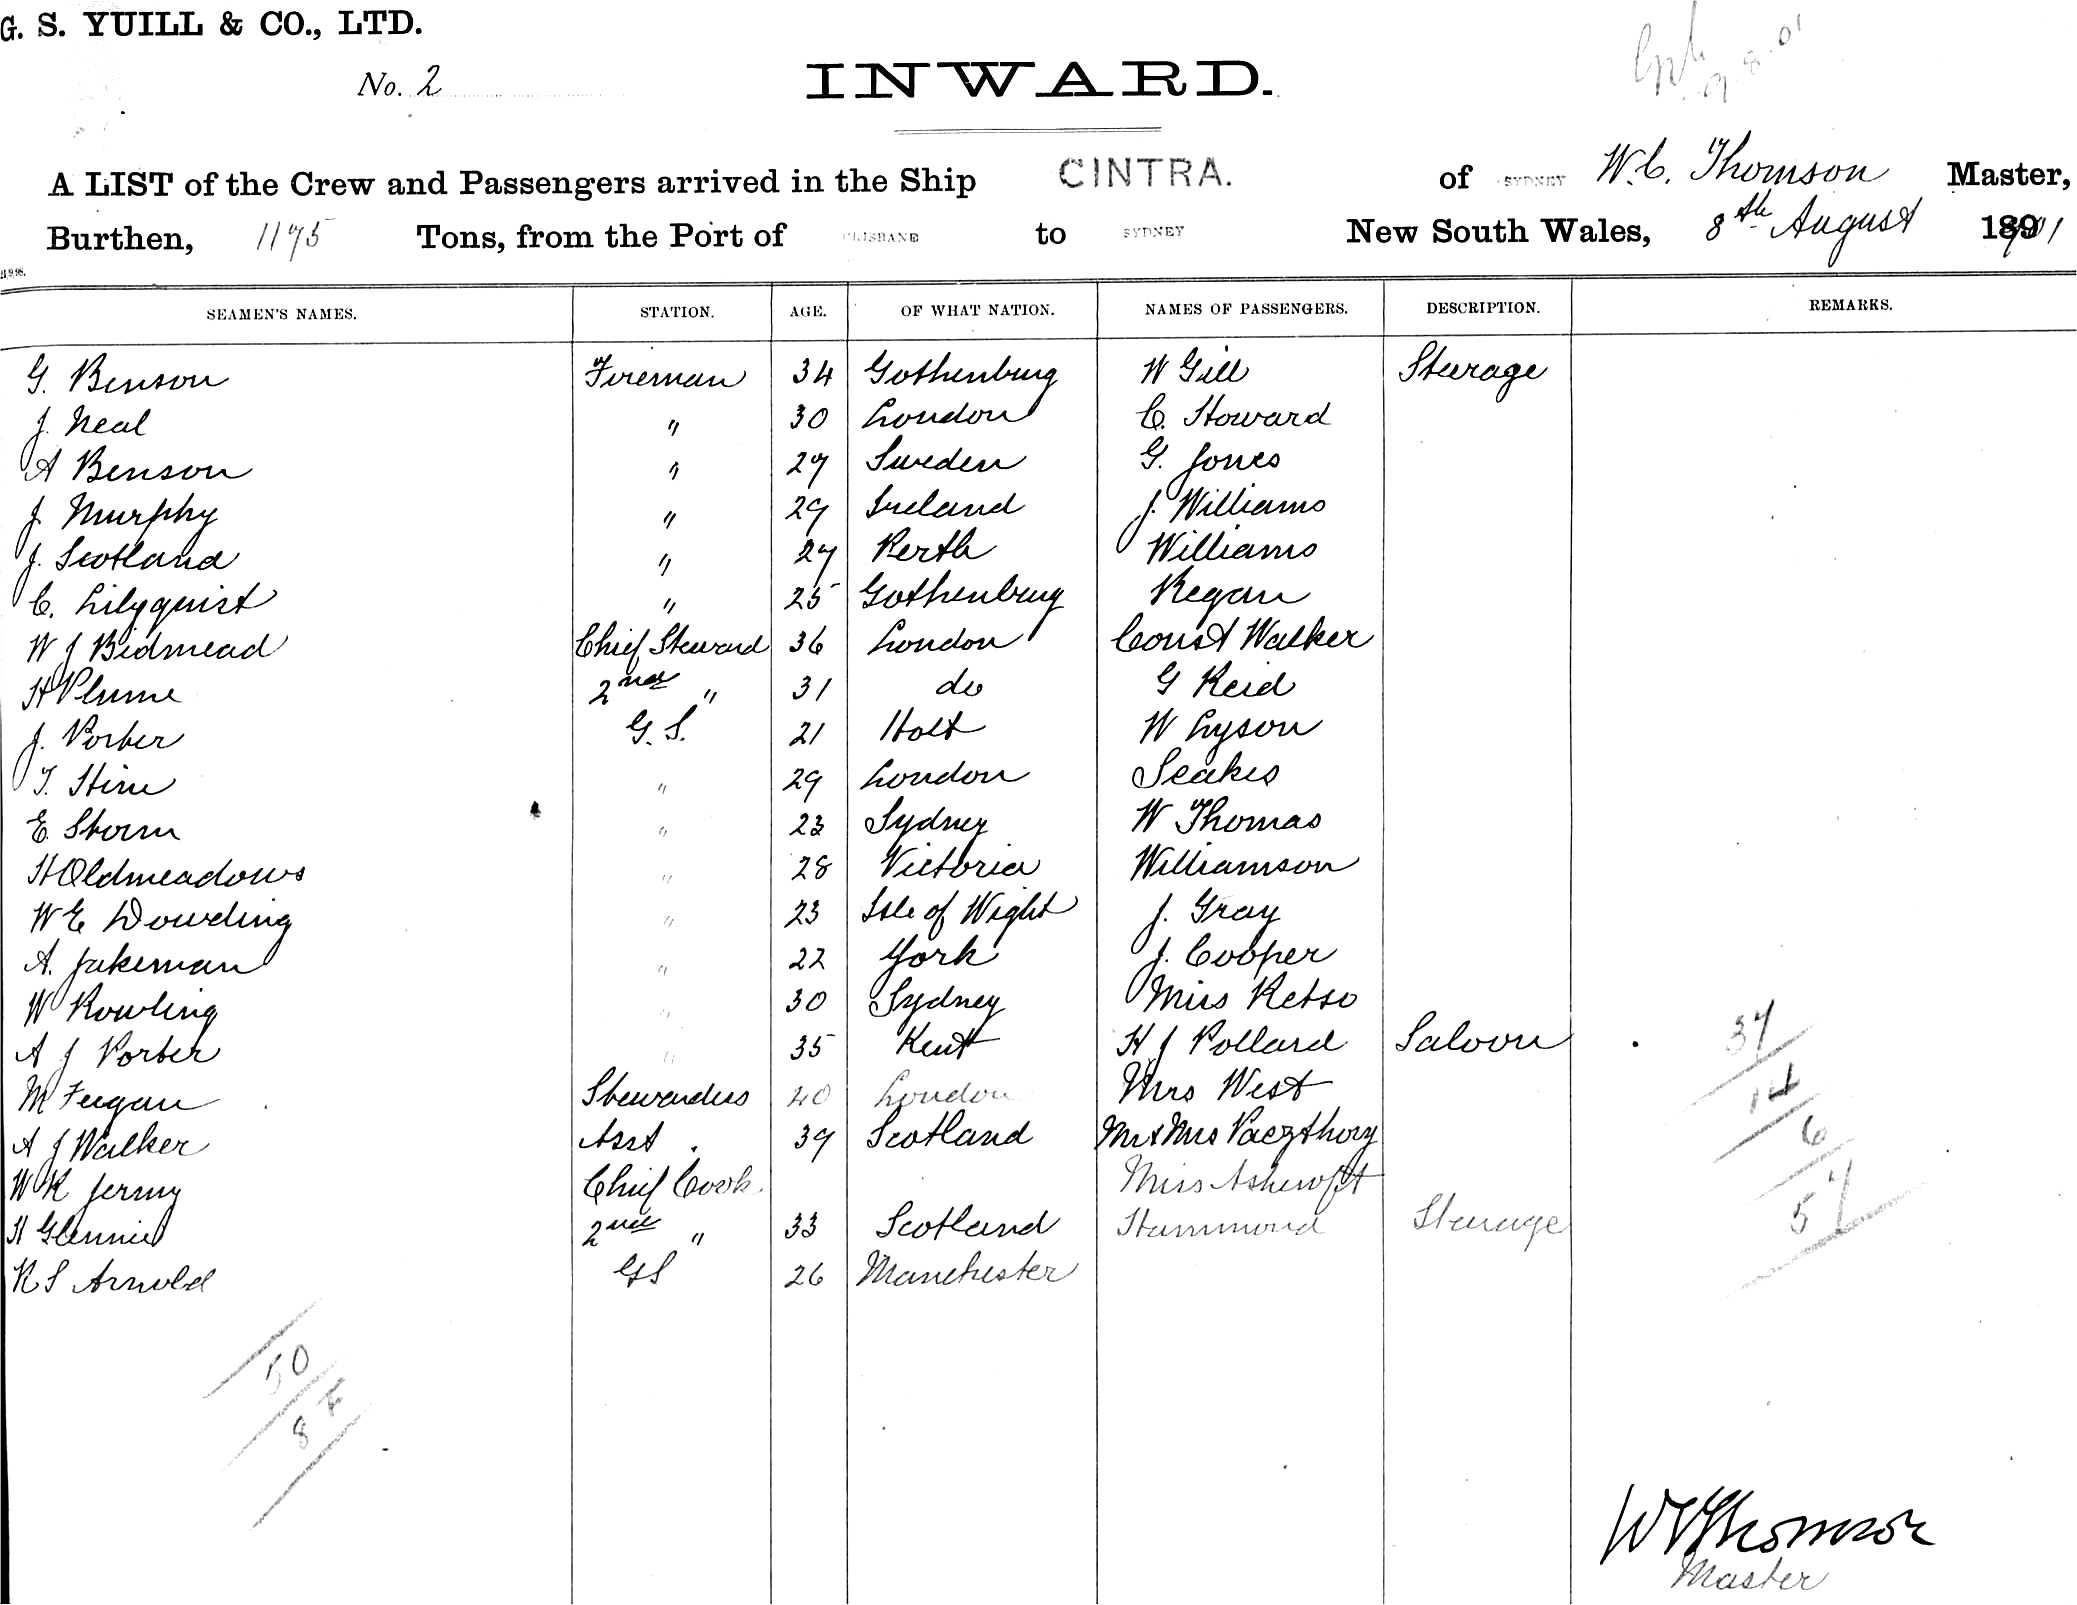 G. S. YUILL & CO., LTD.
No. 2
INWARD.
9.8.01
A LIST of the Crew and Passengers arrived in the Ship CINTRA. of SYDNEY W. C. Thomson Master,
Burthen, 1175 Tons, from the Port of BRISBANE to SYDNEY New South Wales, 8th August 1901
SEAMEN'S NAMES. STATION. AGE. OF WHAT NATION. NAMES OF PASSENGERS. DESCRIPTION. REMARKS.
G. Benson Fireman 34 Gothenburg W Gill Steerage
J. Neal " 30 London C. Howard
A Benson " 27 Sweden G. Jones
J. Murphy " 29 Ireland J. Williams
J. Scotland " 27 Perth Williams
C. Lilyquist " 25 Gothenburg Regan
W J Bidmead Chief Steward 36 London Const Walker
H Plume 2nd " 31 do G Reid
J. Porter G. S. 21 Holt W Lyson
T. Hine " 29 London Seakes
E. Storm " 23 Sydney W Thomas
H Oldmeadows " 28 Victoria Williamson
W E Dowding " 23 Isle of Wight J. Gray
A. Jakeman " 22 York J. Cooper
W Rowling " 30 Sydney Miss Ketso
A J Porter " 35 Kent H J Pollard Saloon
M Feegan Stewardess 40 London Mrs West
A J Walker Asst . 39 Scotland Mr & Mrs Paczthory
W K Jermy Chief Cook. Miss Ashcroft
H Glennie 2nd " 33 Scotland Hammond Steerage
R S Arnold GS 26 Manchester
37
14
6
57
50
8
W C Thomson
Master